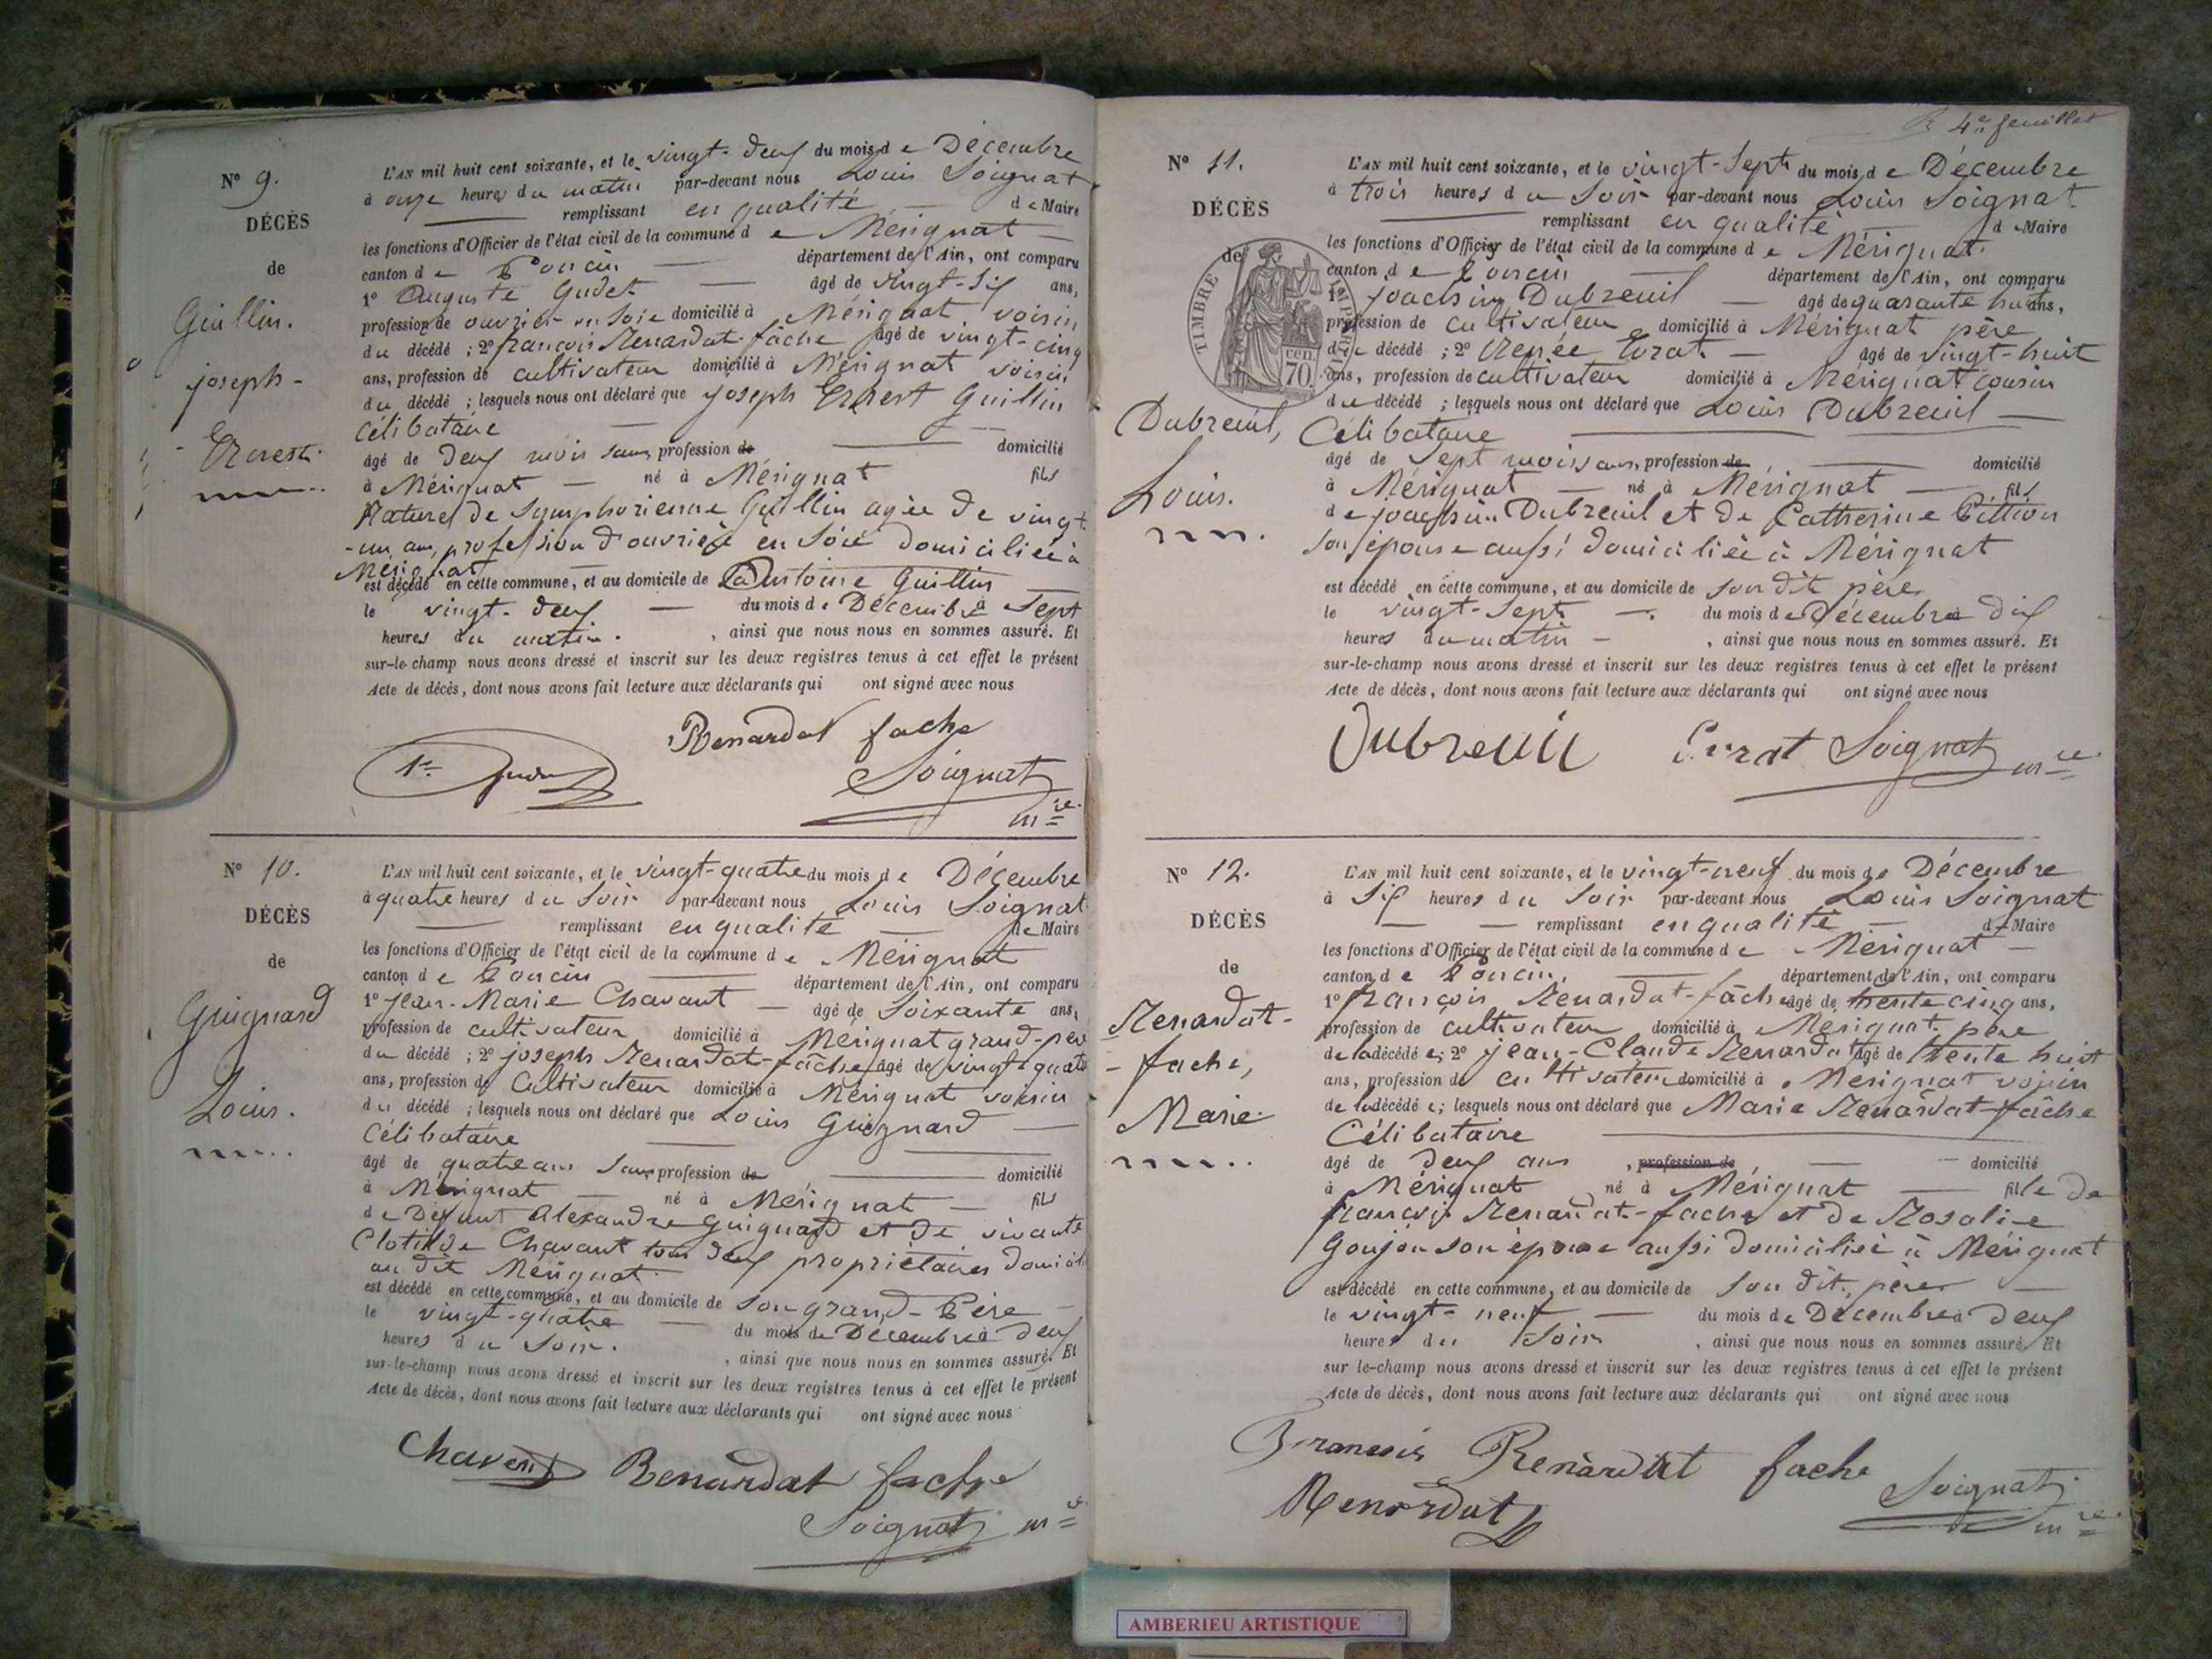 N° 9.
DÉCÈS
de
Guillin.
joseph-
Ernest.
L'AN mil huit cent soixante, et le vingt-deux du mois de Décembre
à onze heures du matin par-devant nous Louis Soignat
remplissant en qualité de Maire
les fonctions d'Officier de l'état civil de la commune de Mérignat
canton de Poncin département de l'Ain, ont comparu
1° Auguste Gudet âgé de vingt-six ans,
profession de ouvrier en soie domicilié à Mérignat voisin
du décédé ; 2° françois Renardat-fâche âgé de vingt-cinq
ans, profession de cultivateur domicilié à Mérignat voisin
du décédé ; lesquels nous ont déclaré que joseph Ernest Guillin
Célibataire
âgé de deux mois sans profession de domicilié
à Mérignat né à Mérignat fils
Naturel de Symphorienne Guillin agée de vingt
-un ans, profession d'ouvrière en soie domiciliée à
Mérignat
est décédé en cette commune, et au domicile de Antoine Guillin
le vingt-deux du mois de Décembre à sept
heures du matin. , ainsi que nous nous en sommes assuré. Et
sur-le-champ nous avons dressé et inscrit sur les deux registres tenus à cet effet le présent
Acte de décès, dont nous avons fait lecture aux déclarants qui ont signé avec nous
Renardat fache
Soignat
mre
N° 10.
DÉCÈS
de
Guignard
Louis.
L'AN mil huit cent soixante, et le vingt-quatre du mois de Décembre
à quatre heures du soir par-devant nous Louis Soignat
remplissant en qualité de Maire
les fonctions d'Officier de l'état civil de la commune de Mérignat
canton de Poncin département de l'Ain, ont comparu
1° Jean-Marie Chavant âgé de soixante ans,
profession de cultivateur domicilié à Mérignat grand-père
du décédé ; 2° joseph Renardat-fâche âgé de vingt-quatre
ans, profession de Cultivateur domicilié à Mérignat voisin
du décédé ; lesquels nous ont déclaré que Louis Guignard
Célibataire
âgé de quatre ans sans profession de domicilié
à Mérignat né à Mérignat fils
de Défunt Alexandre Guignard et de vivante
Clotilde Chavant tous deux propriétaires domicil
au dit Mérignat.
est décédé en cette commune, et au domicile de son grand-Père
le vingt-quatre du mois de Décembre à deux
heures du soir. , ainsi que nous nous en sommes assuré. Et
sur-le-champ nous avons dressé et inscrit sur les deux registres tenus à cet effet le présent
Acte de décès, dont nous avons fait lecture aux déclarants qui ont signé avec nous
Chavent Renardat fache
Soignat mre
4e feuillet
N° 11.
DÉCÈS
de
TIMBRE IMPERIAL
70 cen.
Dubreuil,
Louis.
L'AN mil huit cent soixante, et le vingt-sept du mois de Décembre
à trois heures du soir par-devant nous Louis Soignat
remplissant en qualité de Maire
les fonctions d'Officier de l'état civil de la commune de Mérignat.
canton de Poncin département de l'Ain, ont comparu
1° joachim Dubreuil âgé de quarante huit ans,
profession de cultivateur domicilié à Mérignat père
du décédé ; 2° âgé de vingt-huit
ans, profession de cultivateur domicilié à Mérignat cousin
du décédé ; lesquels nous ont déclaré que Louis Dubreuil
Célibataire
âgé de sept mois sans profession de domicilié
à Mérignat né à Mérignat fils
de joachim Dubreuil et de Catherine Pittion
son épouse aussi domiciliée à Mérignat
est décédé en cette commune, et au domicile de son dit père
le vingt-sept du mois de Décembre à dix
heures du matin , ainsi que nous nous en sommes assuré. Et
sur-le-champ nous avons dressé et inscrit sur les deux registres tenus à cet effet le présent
Acte de décès, dont nous avons fait lecture aux déclarants qui ont signé avec nous
Dubreuil Soignat mre
N° 12.
DÉCÈS
de
Renardat-
-fache,
Marie.
L'AN mil huit cent soixante, et le vingt-neuf du mois de Décembre
à six heures du soir par-devant nous Louis Soignat
remplissant en qualité de Maire
les fonctions d'Officier de l'état civil de la commune de Mérignat
canton de Poncin, département de l'Ain, ont comparu
1° françois Renardat-fâche âgé de trente cinq ans,
profession de cultivateur domicilié à Mérignat père
de la décédée ; 2° jean-Claude Renardat âgé de trente huit
ans, profession de cultivateur domicilié à Mérignat voisin
de la décédée ; lesquels nous ont déclaré que Marie Renardat-fâche
Célibataire
âgé de deux ans , profession de domicilié
à Mérignat né à Mérignat fille de
françois Renardat-fache et de Rosalie
Goujon son épouse aussi domiciliée à Mérignat
est décédé en cette commune, et au domicile de son dit père
le vingt-neuf du mois de Décembre à deux
heures du soir , ainsi que nous nous en sommes assuré. Et
sur le-champ nous avons dressé et inscrit sur les deux registres tenus à cet effet le présent
Acte de décès, dont nous avons fait lecture aux déclarants qui ont signé avec nous
François Renardat fache
Renardat
Soignat
mre
AMBERIEU ARTISTIQUE